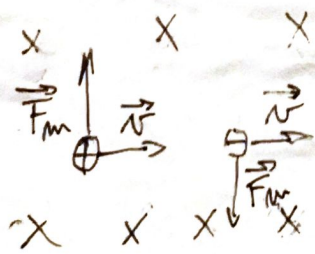 X X X
F⃗m v⃗ v⃗
⊕ ⊖
F⃗m
X X X X